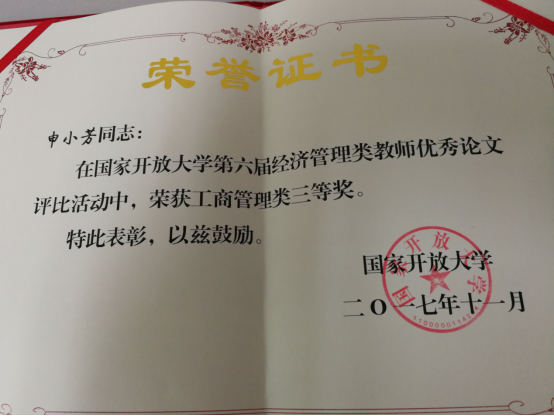 荣誉证书
申小芳同志：
在国家开放大学第六届经济管理类教师优秀论文
评比活动中，荣获工商管理类三等奖。
特此表彰，以兹鼓励。
国家开放大学
二〇一七年十一月
国家开放大学